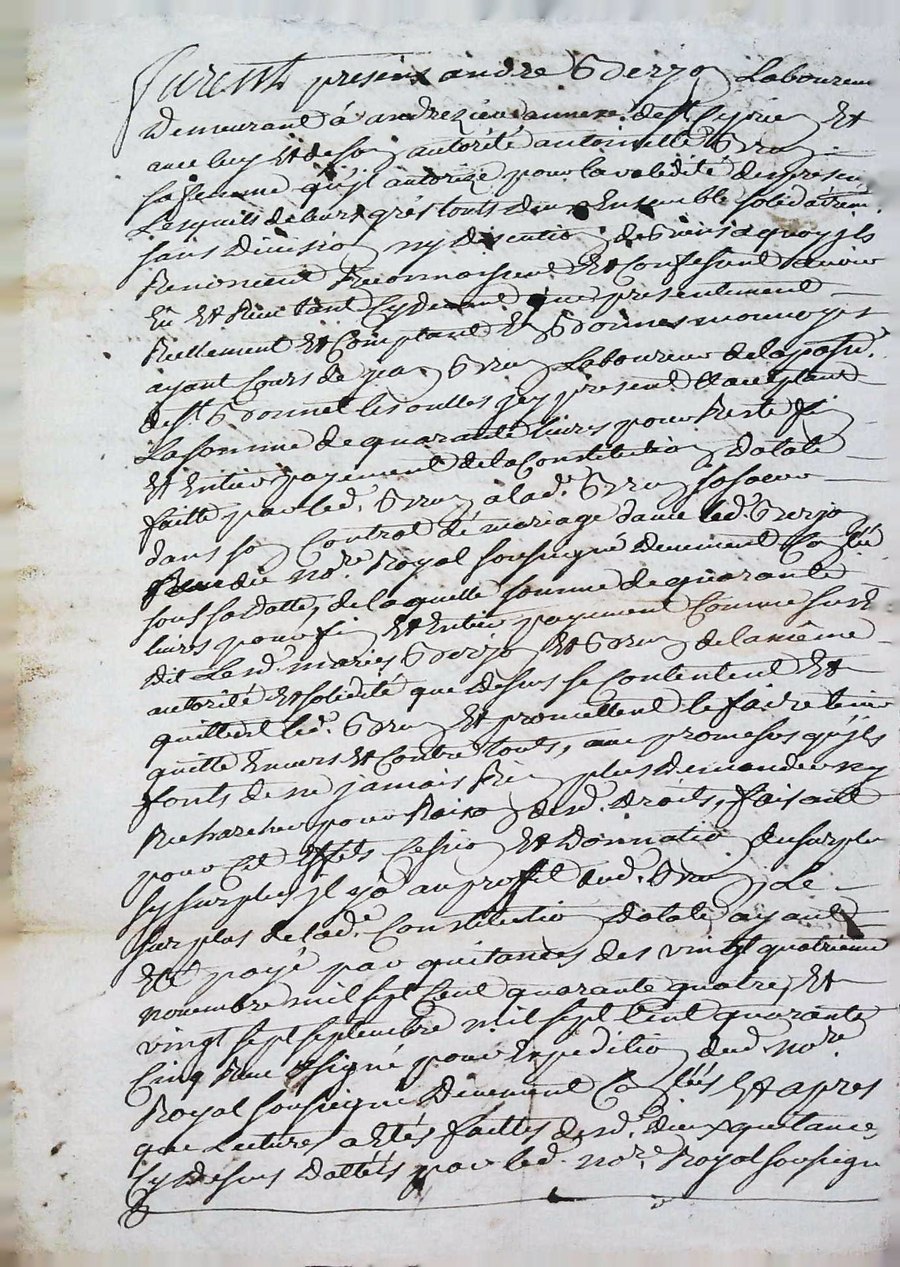 furent presens andre Laboureur
Demeurant á andrezieu annexe de st Cyprien Et
avec luy Et de son autórité antoinette Brun
sa femme qu'jl autorize pour la validité des presen
Lesquels de leurs grés touts deux Ensemble solidairem
sans Division ny discution de Biens a quoy jls
Renoncent Reconnoissent Et Confessent avoir
Eû Et Receu tant Cy devant que presentement
Reellement Et Comptant En Bonnes monnoyes
ayant Cours de Brun Laboureur de la parss.
de st. Bonnet les oulles jcy present Et acceptant
La somme de quarante livres pour Reste fin
Et Entier payement de la Constitution Dotale
faitte par led. Brun a lad. Brun sa soeur
dans son Contrat de mariage avec led.
Receu du nore. Royal soussigné Deuement Conllé
sous sa datte, de laquelle somme de quarante
livres pour fin Et Entier payement Comme sus Est
dit Lesd. mariés Et Brun de la même
autorité Et solidité que Dessus se Contentent Et
quittent led. Brun Et promettent le faire tenir
quitte Envers Et Contre touts, avec promesses qu'jls
fonts de ne jamais Rien plus Demander ny
Rechercher pour Raison desd. Droits, faisant
pour Cet Effets Cession Et Donnation du surplus
sy surplus jl y a au proffit dud. Brun, Le
surplus de lade. Constitution Dotale ayant
Eté payé par quitances des vingt quatrieme
novembre mil sept Cent quarante quatre, Et
vingt sept septembre mil sept Cent quarante
Cinq Receu Et signé pour Expedition dud. nore.
Royal soussigné Deuement Conllés Et apres
que Lecture a Etés faitte desd. Deux quitances
Cy Dessus Dattés par led. nore. Royal soussigné